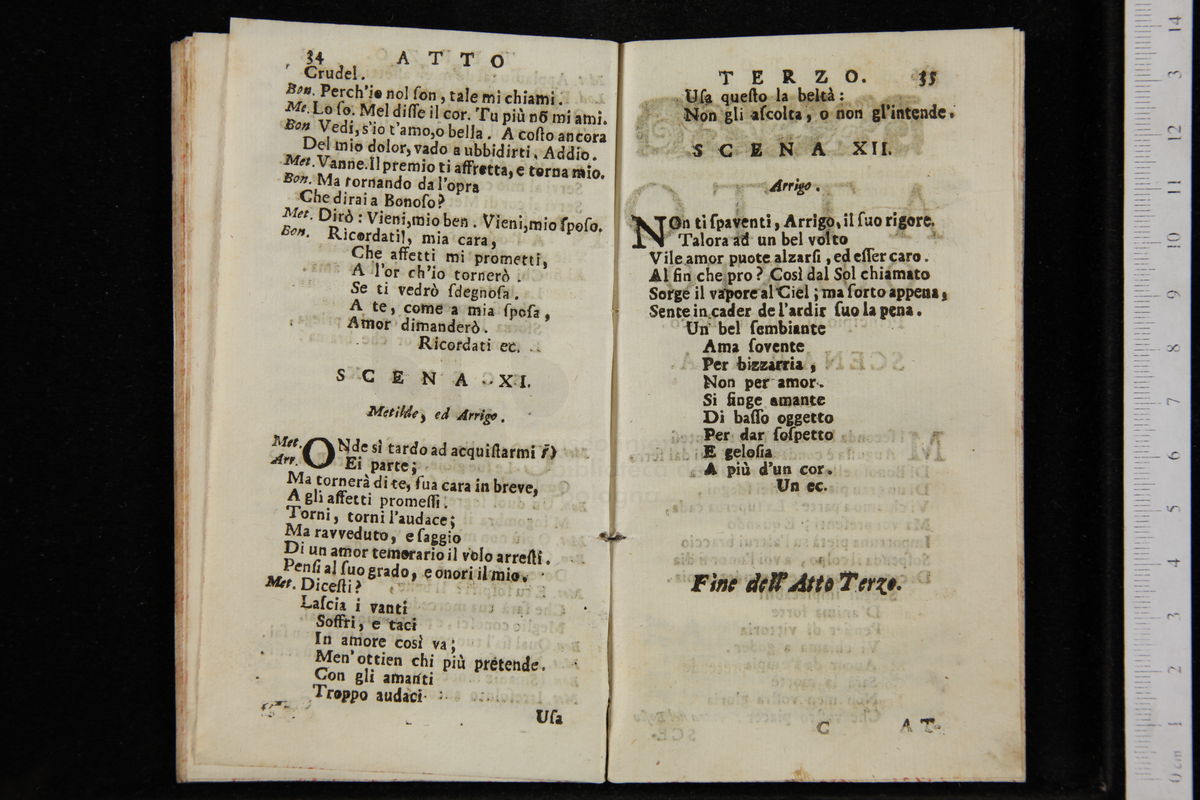 34 ATTO
Crudel.
Bon. Perch'io nol ſon, tale mi chiami.
Me. Lo ſo. Mel diſſe il cor. Tu più nō mi ami.
Bon Vedi, s'io t'amo, o bella. A coſto ancora
Del mio dolor, vado a ubbidirti. Addio.
Met. Vanne. Il premio ti affretta, e torna mio.
Bon. Ma tornando da l'opra
Che dirai a Bonoſo?
Met. Dirò: Vieni, mio ben. Vieni, mio ſpoſo.
Bon. Ricordati, mia cara,
Che affetti mi prometti,
A l'or ch'io tornerò.
Se ti vedrò ſdegnoſa.
A te, come a mia ſpoſa,
Amor dimanderò.
Ricordati ec.
SCENA XI.
Metilde, ed Arrigo.
Met. ONde sì tardo ad acquiſtarmi
Arr. Ei parte;
Ma tornerà di te, ſua cara in breve,
A gli affetti promeſſi.
Torni, torni l'audace;
Ma ravveduto, e ſaggio
Di un amor temerario il volo arreſti.
Penſi al ſuo grado, e onori il mio.
Met. Diceſti?
Laſcia i vanti
Soffri, e taci
In amore così va;
Men' ottien chi più pretende.
Con gli amanti
Troppo audaci
Uſa
TERZO. 35
Uſa queſto la beltà:
Non gli aſcolta, o non gl'intende.
SCENA XII.
Arrigo.
NOn ti ſpaventi, Arrigo, il ſuo rigore.
Talora ad un bel volto
Vile amor puote alzarſi, ed eſſer caro.
Al fin che pro? Così dal Sol chiamato
Sorge il vapore al Ciel; ma ſorto appena,
Sente in cader de l'ardir ſuo la pena.
Un bel ſembiante
Ama ſovente
Per bizzarria,
Non per amor.
Si finge amante
Di baſſo oggetto
Per dar ſoſpetto
E geloſia
A più d'un cor.
Un ec.
Fine dell' Atto Terzo.
C AT-